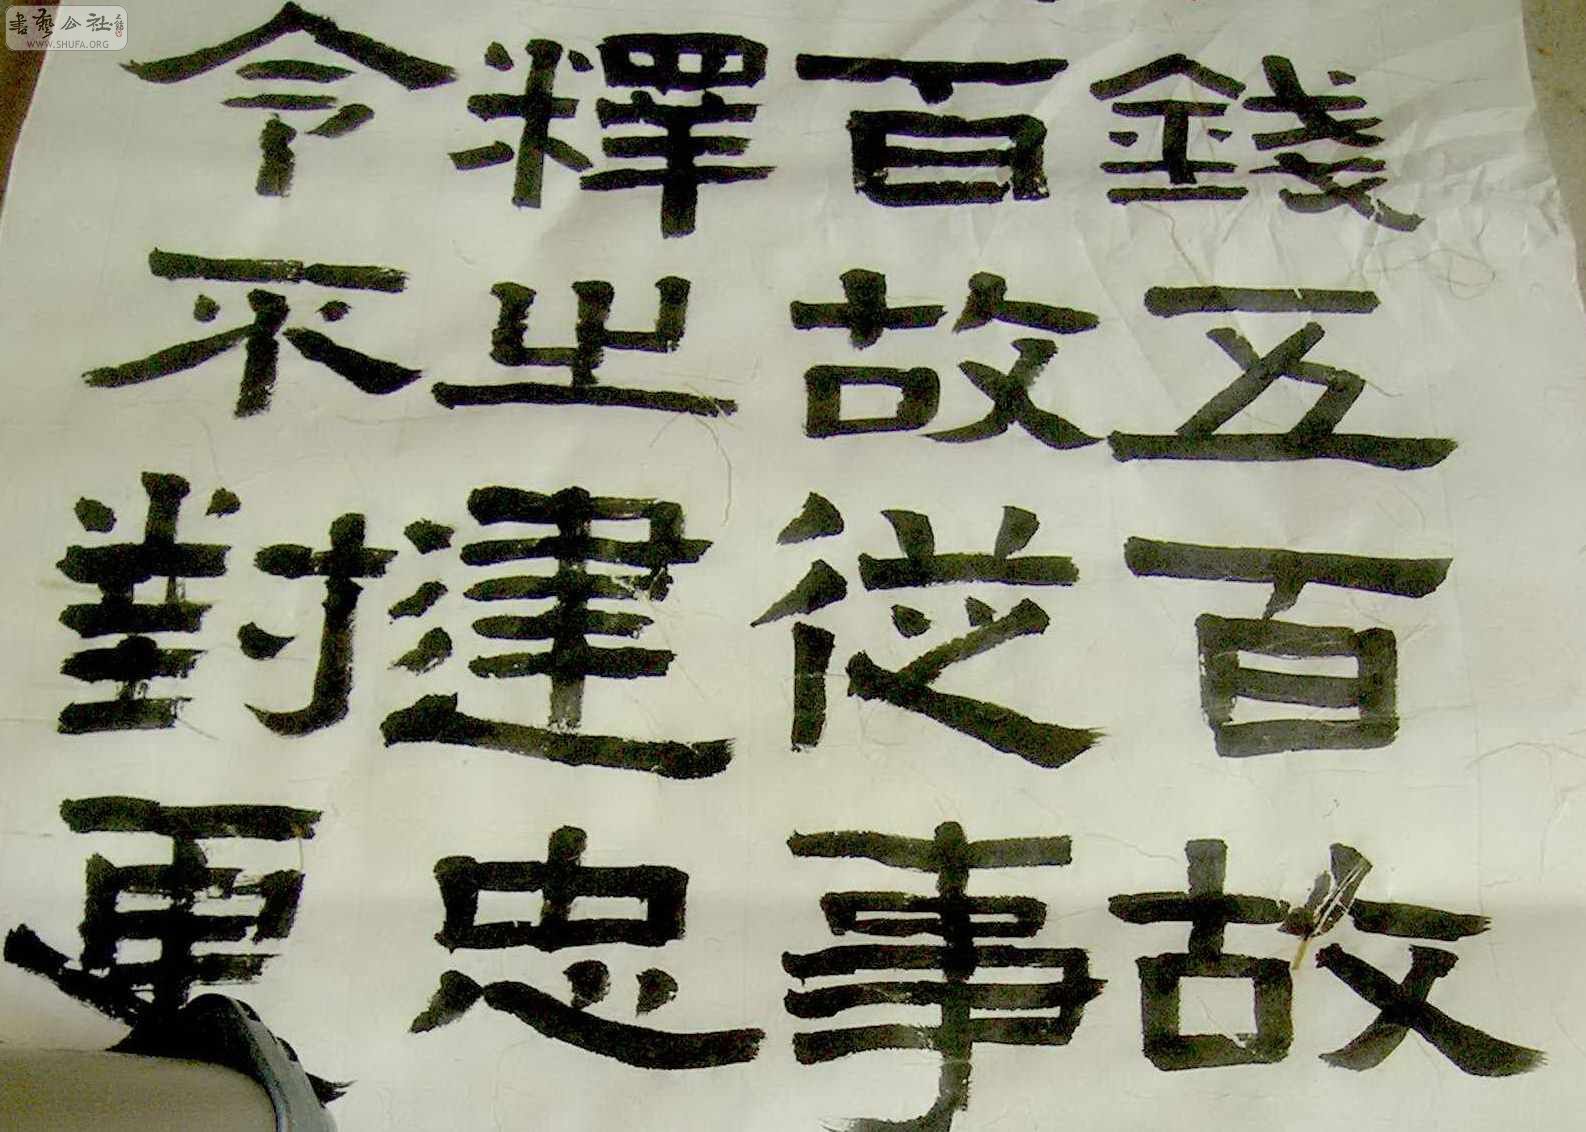 書藝公社
WWW.SHUFA.ORG
錢五百故
百故從事
釋之建忠
令對更